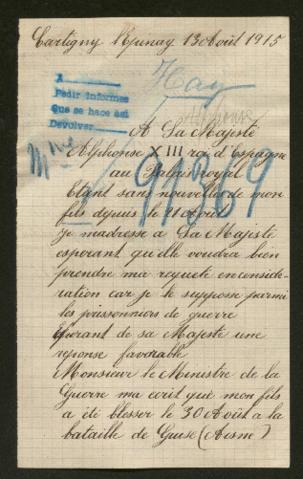 Cartigny Epinay 13 Août 1915
Hay
A
Pedir informes
Que se hace así
Devolver
A Sa Majesté
Alphonse XIII roi d'Espagne
au Palais royal
91.869
Etant sans nouvelle de mon
fils depuis le 21 Août
je madresse a Sa Majesté
esperant qu'elle voudra bien
prendre ma requete en conside-
ration car je le suppose parmi
les prisonniers de guerre
de sa Majesté une
reponse favorable
Monsieur le Ministre de la
Guerre ma ecrit que mon fils
a été blesser le 30 Août a la
bataille de Guise (Aisne)